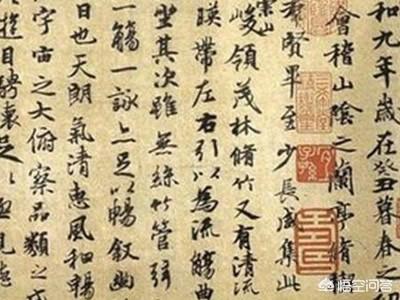 和九年歲在癸丑暮春之初
會稽山陰之蘭亭脩禊
羣賢畢至少長咸集此
崇山
峻領茂林脩竹又有清流
暎帶左右引以為流觴曲
坐其次雖無絲竹管弦
一觴一詠亦足以暢敘幽
日也天朗氣清惠風和暢
宇宙之大俯察品類之盛
遊目騁懷足以
悟空问答